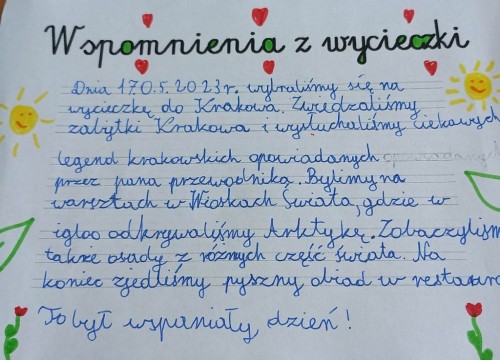 Wspomnienia z wycieczki
Dnia 17.05.2023 r. wybraliśmy się na
wycieczkę do Krakowa. Zwiedzaliśmy
zabytki Krakowa i wysłuchaliśmy ciekawych
legend krakowskich opowiadanych
przez pana przewodnika. Byliśmy na
warsztach w Wioskach Świata, gdzie w
igloo odkrywaliśmy Arktykę. Zobaczyliśm
także osady z różnych część świata. Na
koniec zjedliśmy pyszny obiad w restaura
To był wspaniały dzień!